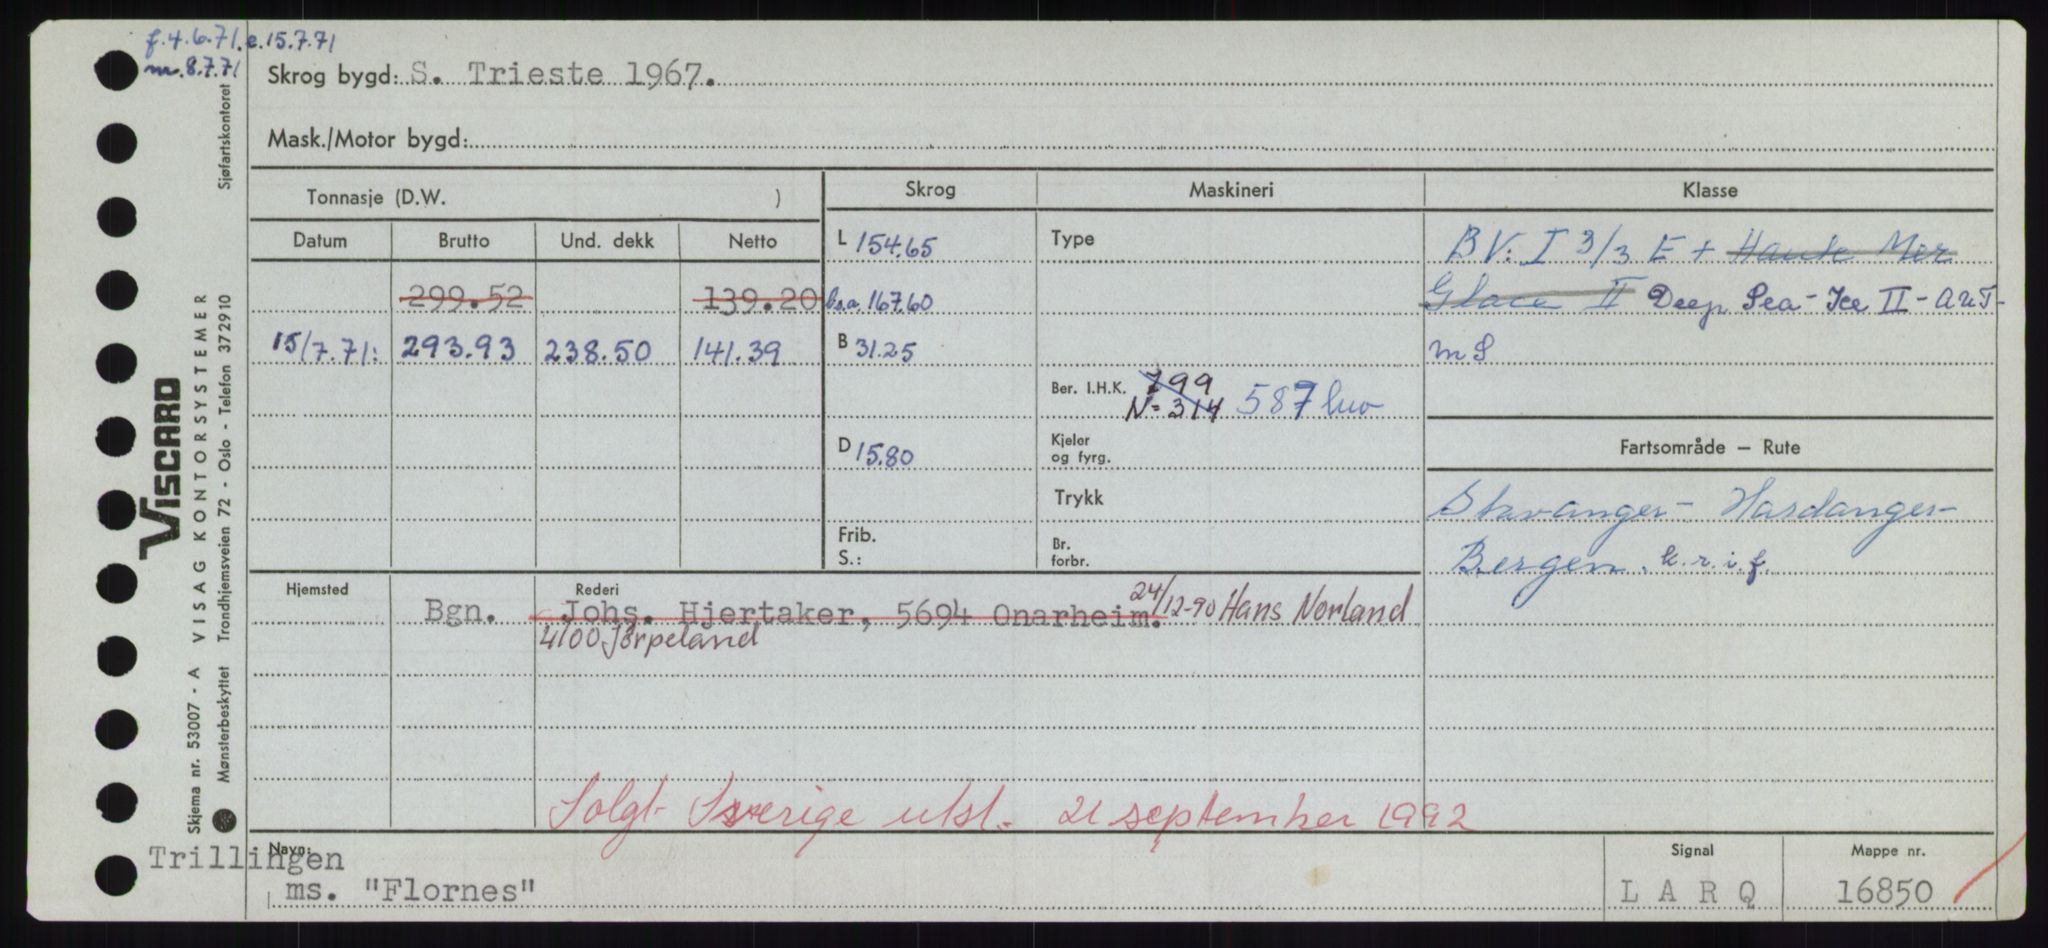 f.4.6.71. e.15.7.71
m.8.7.71
Skrog bygd: S. Trieste 1967.
Mask./Motor bygd:
Tonnasje (D.W. )
Skrog
Maskineri
Klasse
Datum Brutto Und. dekk Netto
299.52 139.20
15/7.71: 293.93 238.50 141.39
L 154.65
b.a. 167.60
B 31.25
D 15.80
Frib.
S.:
Type
Ber. I.H.K. 799
N= 314 587
Kjeler
og fyrg.
Trykk
Br.
forbr.
BV. I 3/3 E + Haute Mer
Glace II Deep Sea - Ice II - AUT-
MS
Fartsområde — Rute
Stavanger - Hardanger-
Bergen. k.r.i.f.
Hjemsted Rederi
Bgn. Johs. Hjertaker, 5694 Onarheim. 24/12-90 Hans Norland
4100 Jørpeland
Solgt Sverige utsl. 21 september 1992
Navn:
Trillingen
ms. "Flornes"
Signal
LARQ
Mappe nr.
16850
Sjøfartskontoret
VISCARD
VISAG KONTORSYSTEMER
Trondhjemsveien 72 - Oslo - Telefon 372910
Skjema nr. 53007 - A
Mønsterbeskyttet